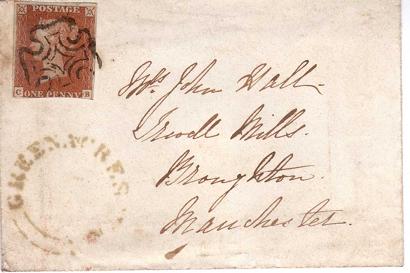 POSTAGE
C ONE PENNY B
Mr. John Hall
Irwell Mills.
Broughton.
Manchester.
GREENACRES